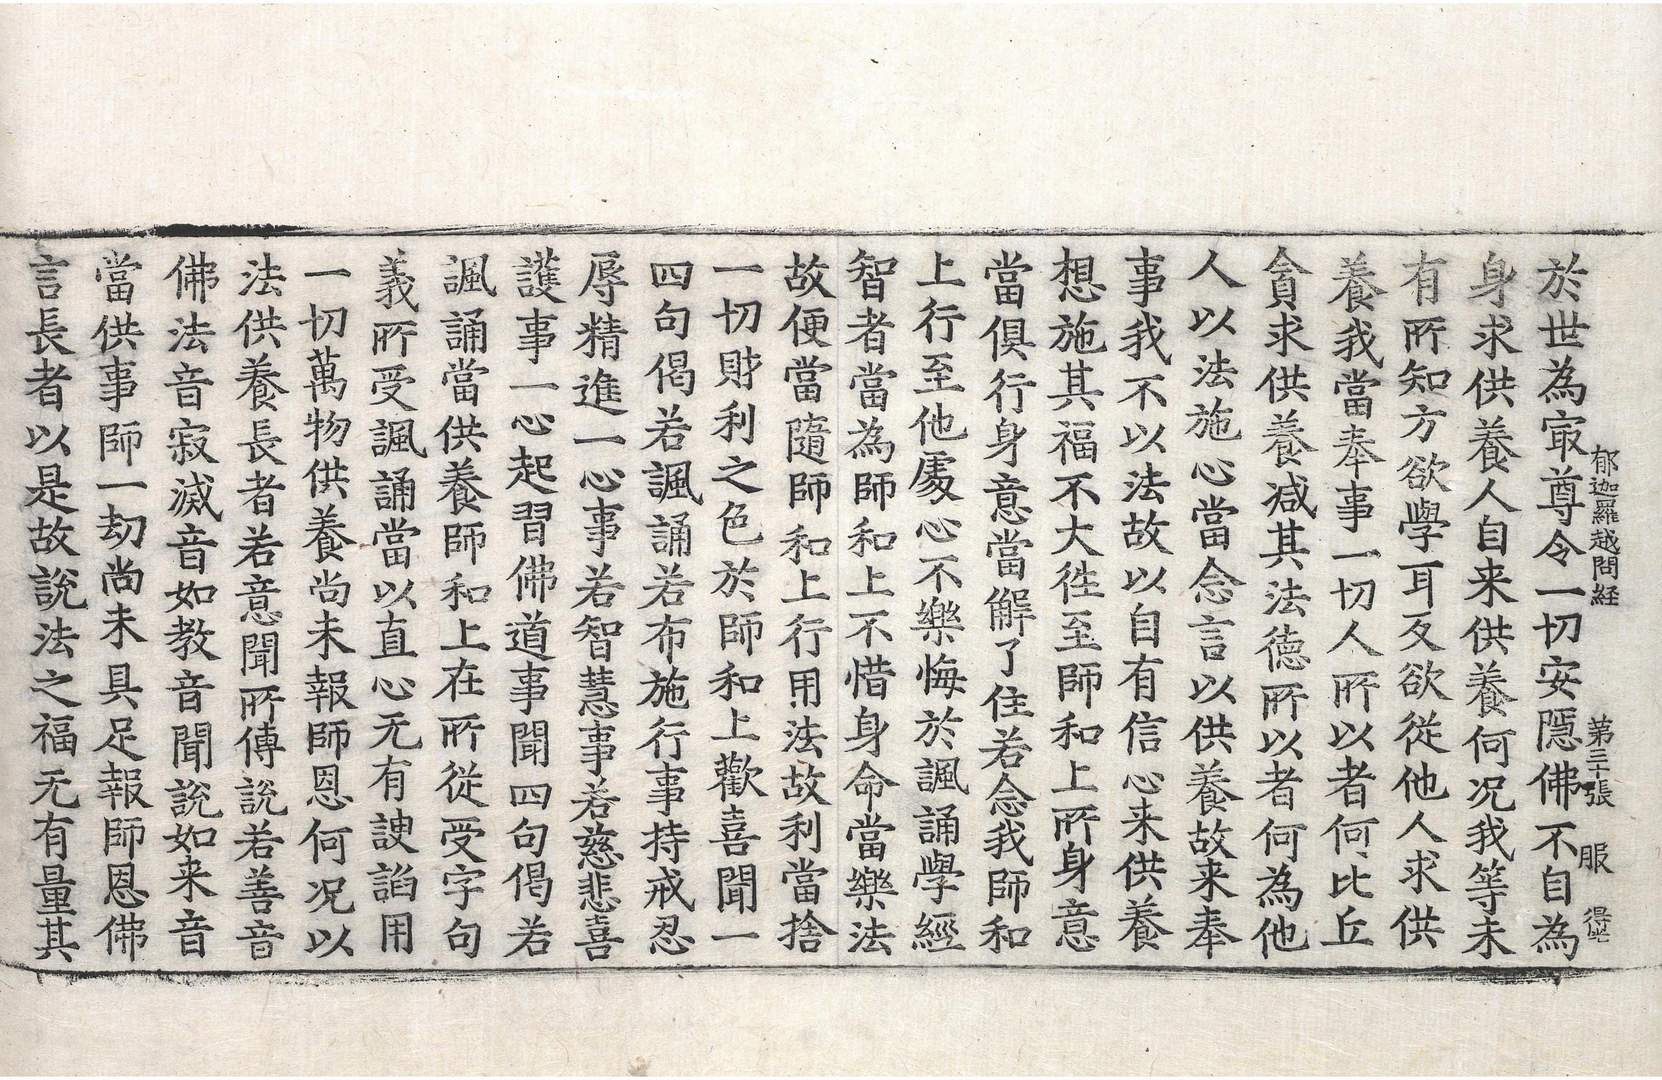 郁迦羅越問経 第三十張 服
於世為㝡尊令一切安隱佛不自為
身求供養人自来供養何况我等未
有所知方欲學耳反欲從他人求供
養我當奉事一切人所以者何比丘
貪求供養减其法德所以者何為他
人以法施心當念言以供養故来奉
事我不以法故以自有信心来供養
想施其福不大徃至師和上所身意
當俱行身意當解了住若念我師和
上行至他處心不樂悔於諷誦學經
智者當為師和上不惜身命當樂法
故便當隨師和上行用法故利當捨
一切財利之色於師和上歡喜聞一
四句偈若諷誦若布施行事持戒忍
辱精進一心事若智慧事若慈悲喜
護事一心起習佛道事聞四句偈若
諷誦當供養師和上在所從受字句
義所受諷誦當以直心无有諛諂用
一切萬物供養尚未報師恩何况以
法供養長者若意聞所傳説若善音
佛法音寂滅音如教音聞説如来音
當供事師一劫尚未具足報師恩佛
言長者以是故説法之福无有量其